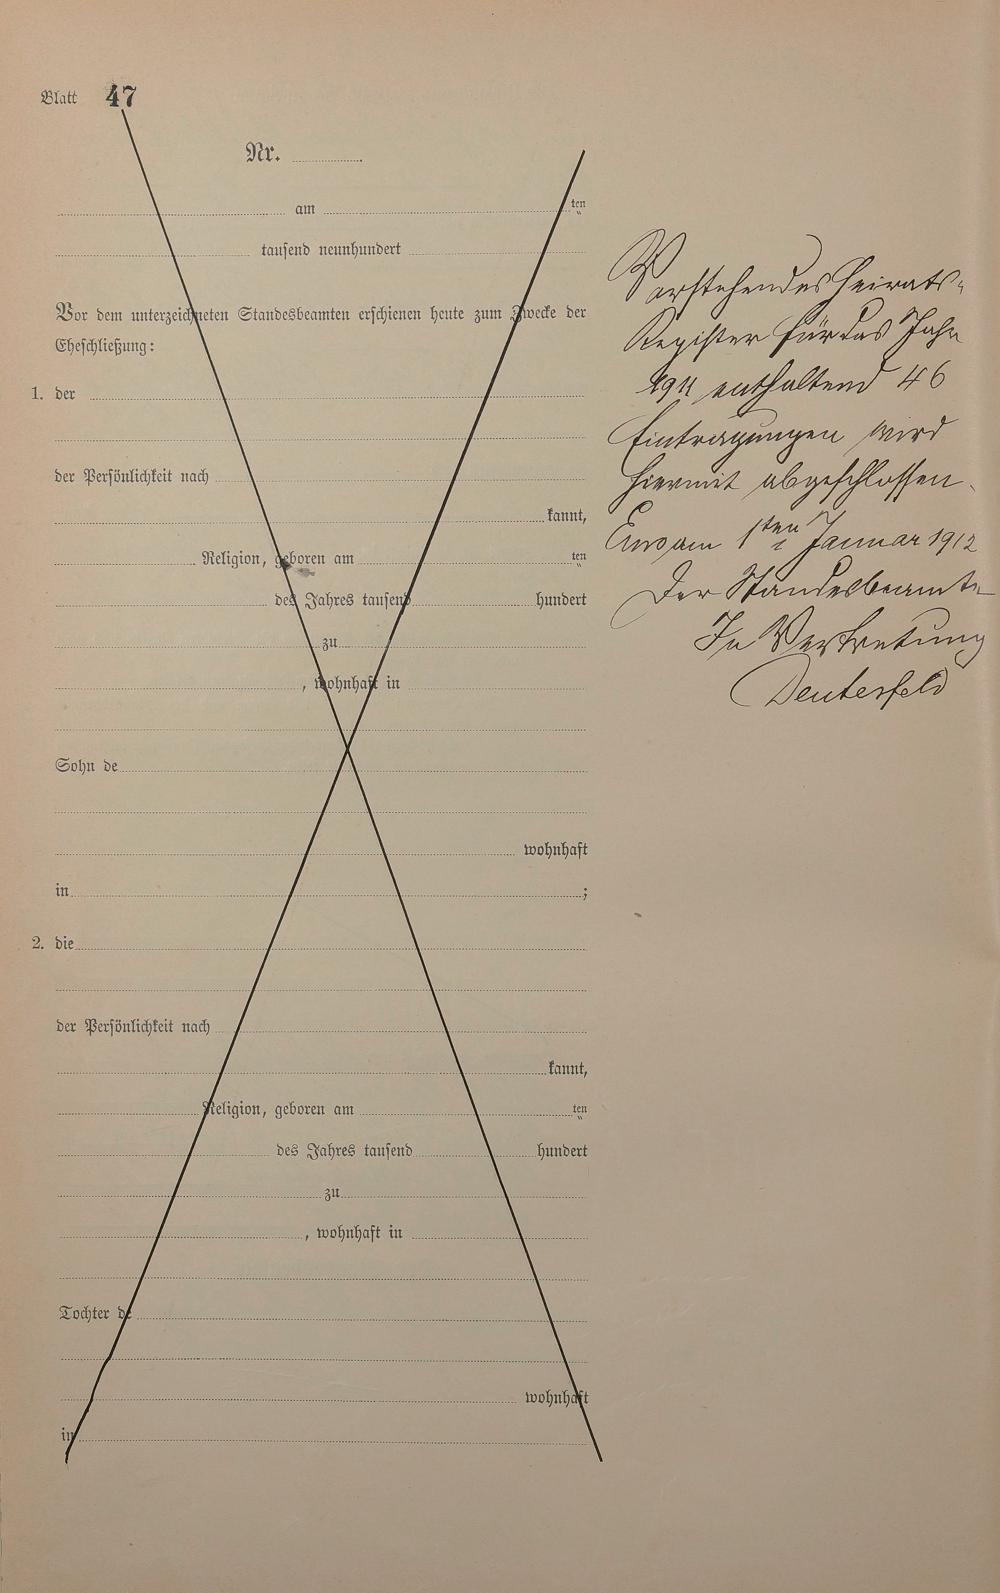 Blatt 47
Nr.
am ten
tausend neunhundert
Vor dem unterzeichneten Standesbeamten erschienen heute zum Zwecke der
Eheschließung:
1. der
der Persönlichkeit nach
kannt,
Religion, geboren am ten
des Jahres tausend hundert
zu
, wohnhaft in
Sohn de
wohnhaft
in ;
2. die
der Persönlichkeit nach
kannt,
Religion, geboren am ten
des Jahres tausend hundert
zu
, wohnhaft in
Tochter de
wohnhaft
in
Vorstehendes Heirats-
Register für das Jahr
1911 enthaltend 46
Eintragungen wird
hiermit abgeschlossen.
am 1ten Januar 1912
Der Standesbeamte
In Vertretung
Deutesfeld